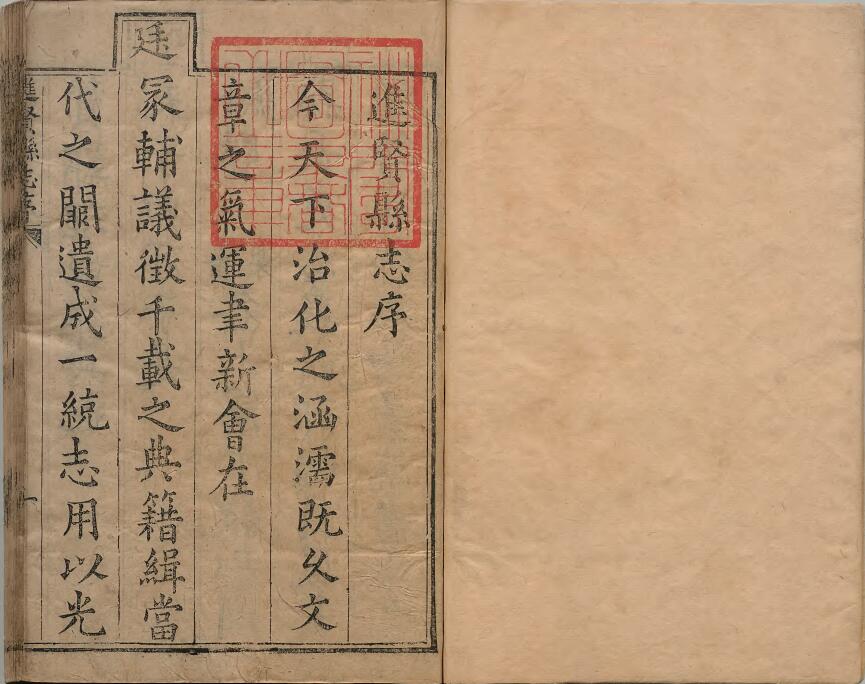 進賢縣志序
今天下治化之涵濡既久文
章之氣運聿新會在
廷冢輔議徵千載之典籍緝當
代之闕遺成一統志用以光
進賢縣志序
一